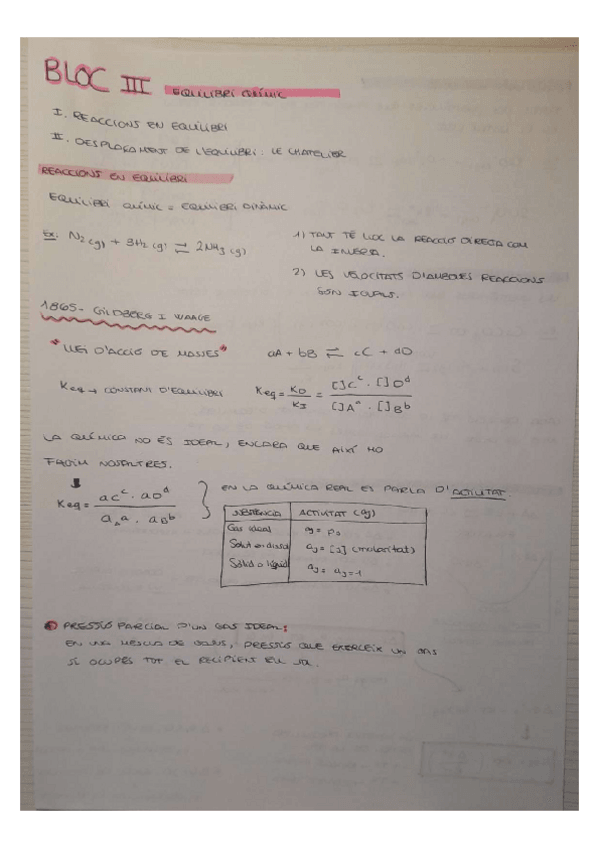 BLOC III EQUILIBRI QUÍMIC
I. REACCIONS EN EQUILIBRI
II. DESPLAÇAMENT DE L'EQUILIBRI: LE CHATELIER
REACCIONS EN EQUILIBRI
EQUILIBRI QUÍMIC = EQUILIBRI DINÀMIC
Ex: N2 (g) + 3H2 (g) ⇌ 2NH3 (g)
1) TANT TÉ LLOC LA REACCIÓ DIRECTA COM
LA INVERSA.
2) LES VELOCITATS D'AMBDUES REACCIONS
SÓN IGUALS.
1865 - GULDBERG I WAAGE
*LLEI D'ACCIÓ DE MASSES*
aA + bB ⇌ cC + dD
Keq → CONSTANT D'EQUILIBRI
Keq = KD / KI = []C^c · []D^d / []A^a · []B^b
LA QUÍMICA NO ÉS IDEAL, ENCARA QUE AIXÍ HO
FAGIM NOSALTRES.
Keq = aC^c · aD^d / aA^a · aB^b
EN LA QUÍMICA REAL ES PARLA D'ACTIVITAT
SUBSTÀNCIA ACTIVITAT (aj)
Gas ideal aj = Pj
Solut en dissol aj = [j] (molaritat)
Sòlid o líquid aj =
PRESSIÓ PARCIAL D'UN GAS IDEAL:
EN UNA MESCLA DE GASOS, PRESSIÓ QUE EXERCEIX UN GAS
SI OCUPÉS TOT EL RECIPIENT ELL SOL.